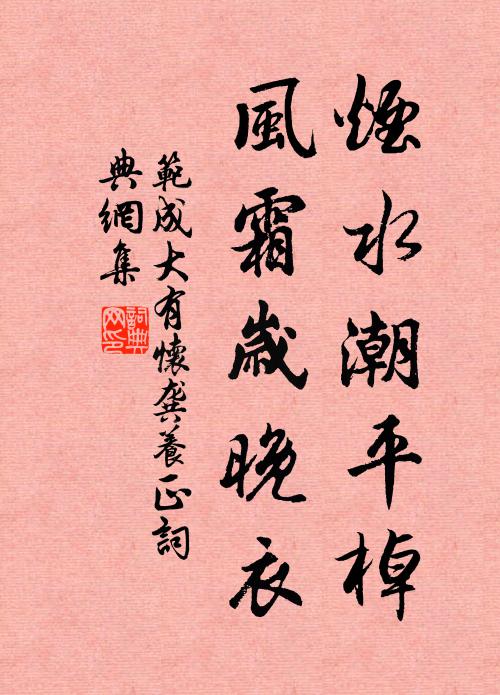 煙水潮平棹
風霜歲晚衣
範成大有懷龔養正詞
典網集
詞典
网印